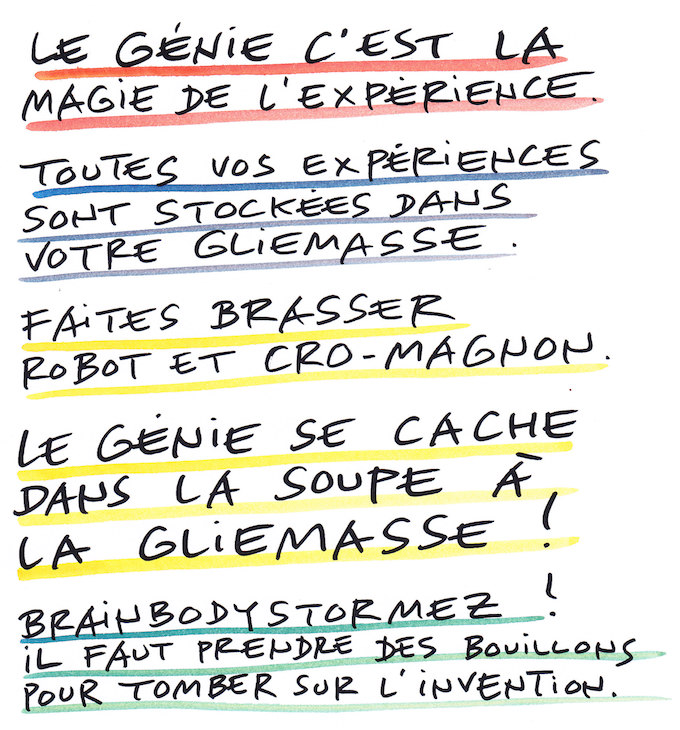 LE GÉNiE C'EST LA
MAGiE DE L'EXPÉRiENCE.
TOUTES VOS EXPÉRiENCES
SONT STOCKÉES DANS
VOTRE GLiEMASSE.
FAiTES BRASSER
ROBOT ET CRO-MAGNON.
LE GÉNiE SE CACHE
DANS LA SOUPE À
LA GLiEMASSE !
BRAiNBODYSTORMEZ !
iL FAUT PRENDRE DES BOUiLLONS
POUR TOMBER SUR L'iNVENTiON.